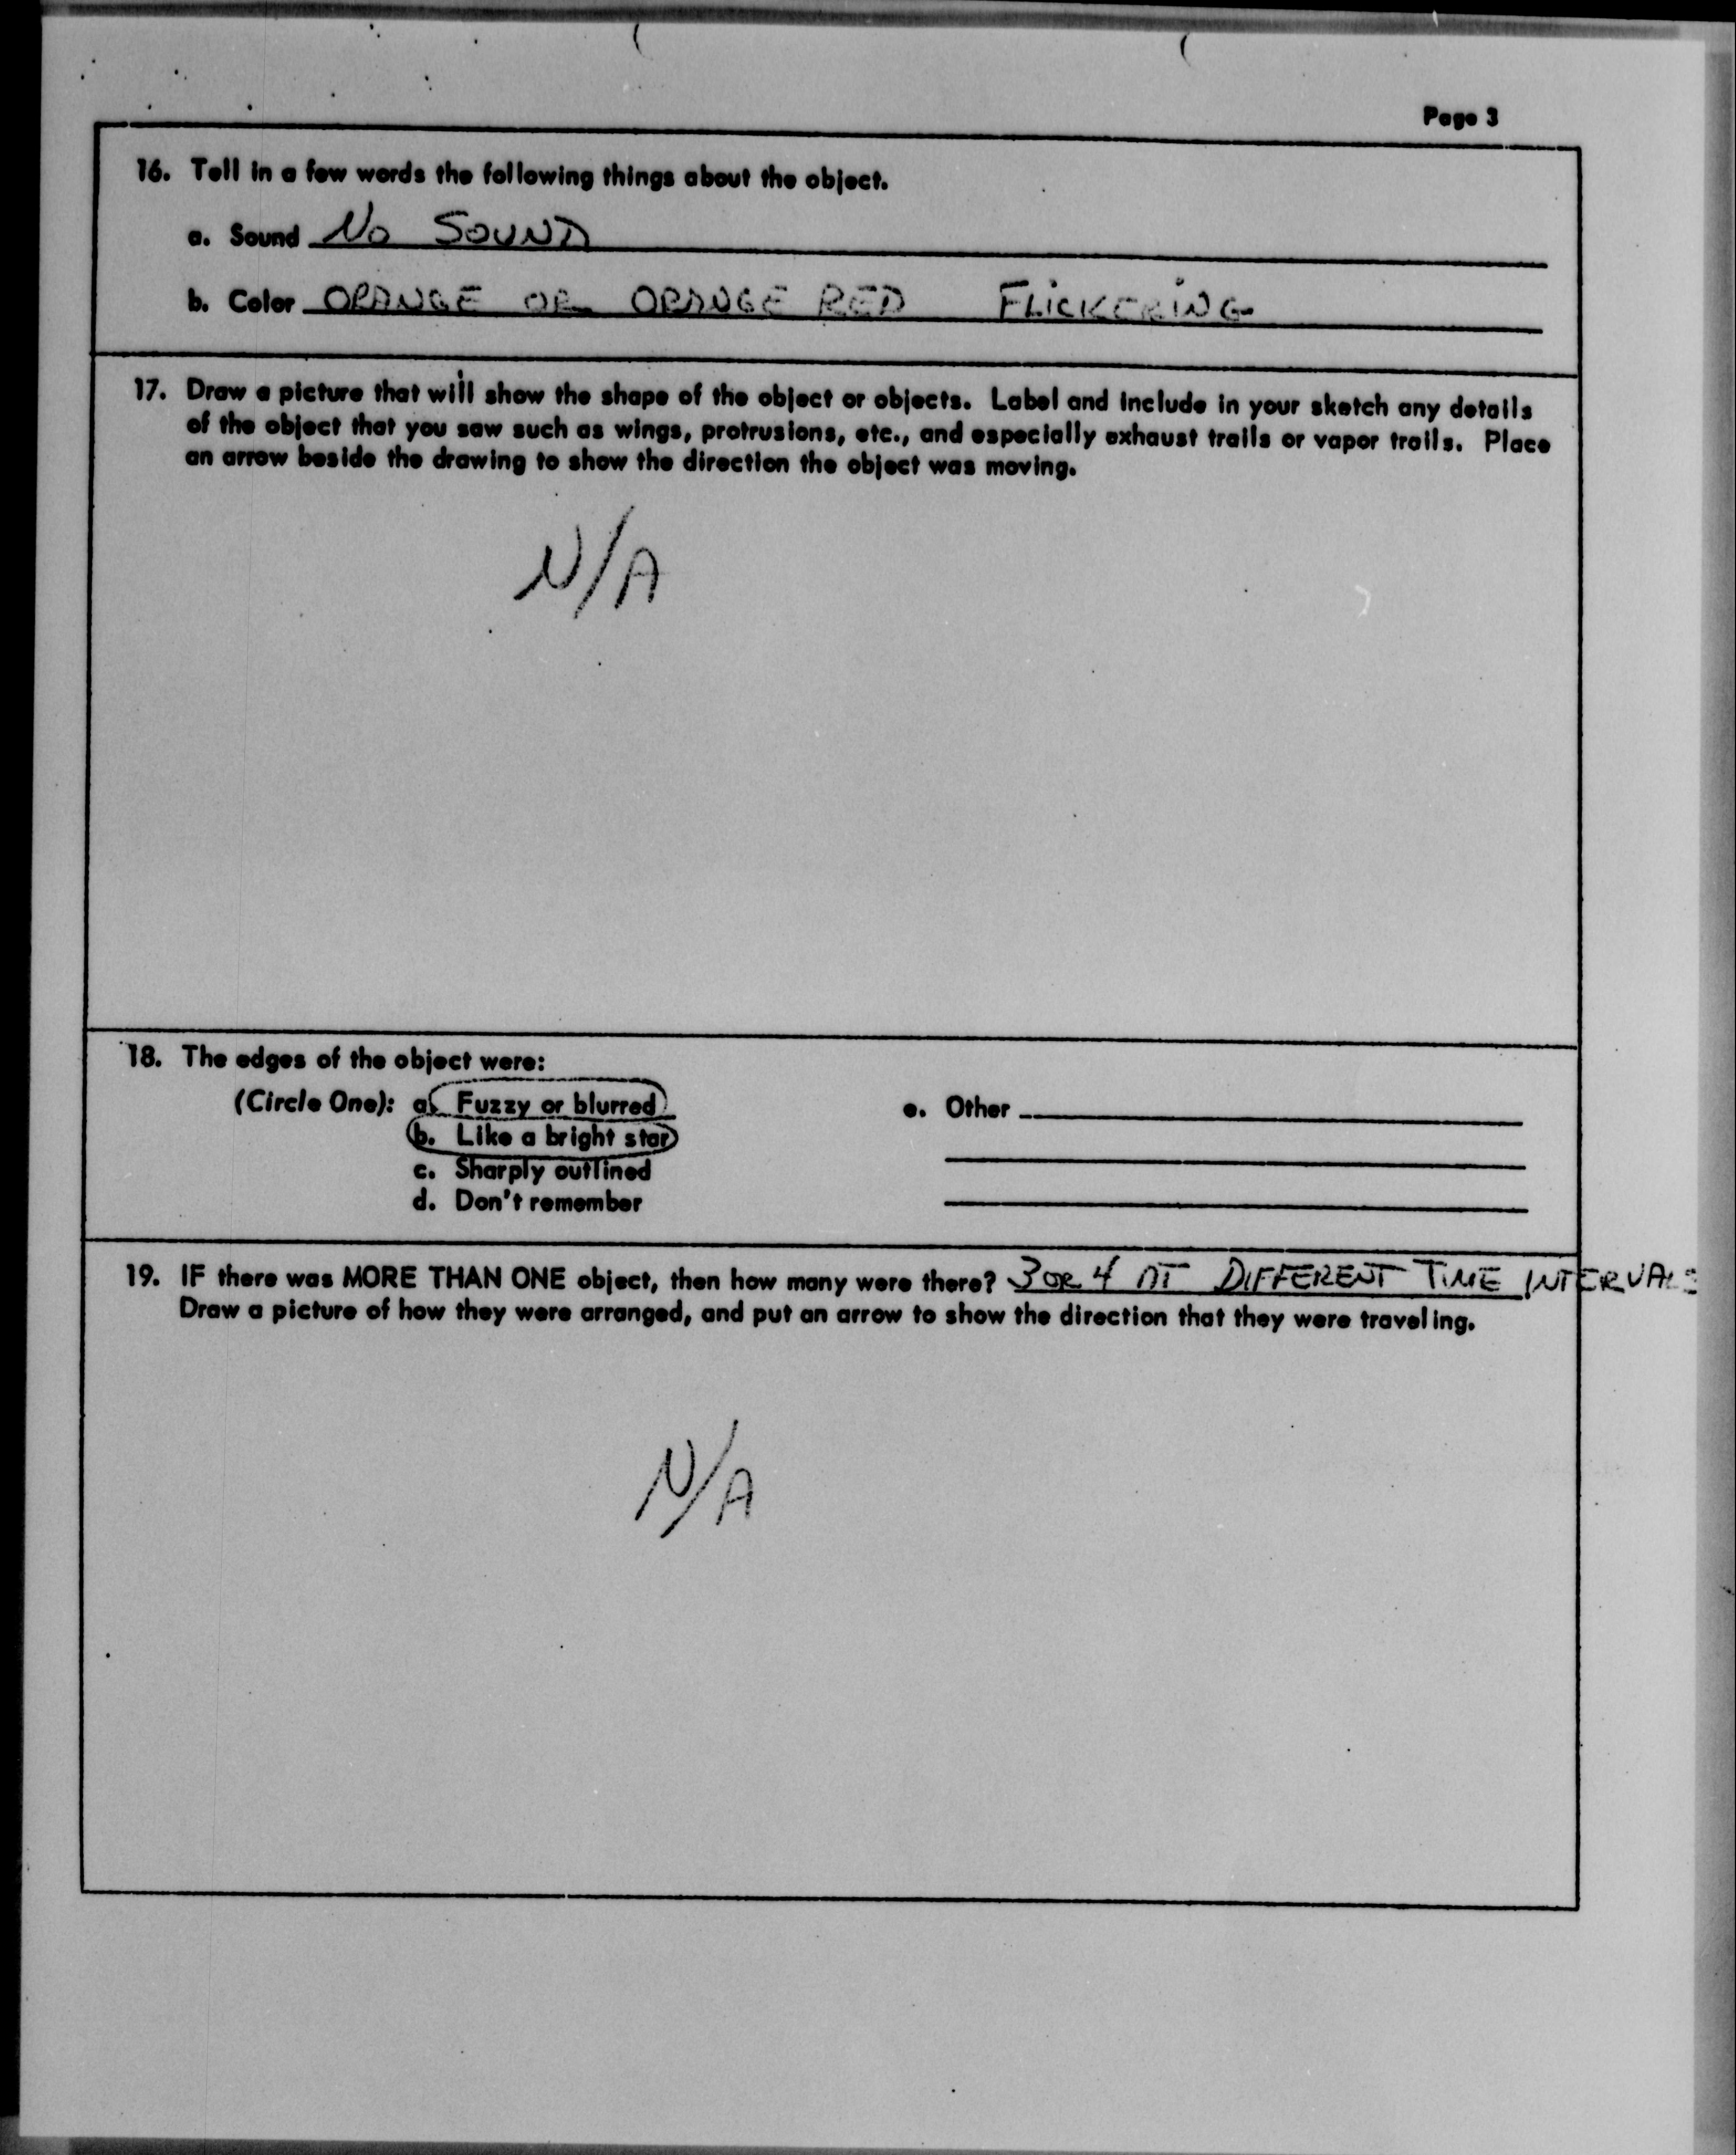 Page 3
16. Tell in a few words the following things about the object.
a. Sound No SOUND
b. Color ORANGE OR ORANGE RED FLICKERING
17. Draw a picture that will show the shape of the object or objects. Label and include in your sketch any details
of the object that you saw such as wings, protrusions, etc., and especially exhaust trails or vapor trails. Place
an arrow beside the drawing to show the direction the object was moving.
N/A
18. The edges of the object were:
(Circle One): a. Fuzzy or blurred
b. Like a bright star
c. Sharply outlined
d. Don't remember
e. Other
19. IF there was MORE THAN ONE object, then how many were there? 3 OR 4 AT DIFFERENT TIME INTERVALS
Draw a picture of how they were arranged, and put an arrow to show the direction that they were traveling.
N/A